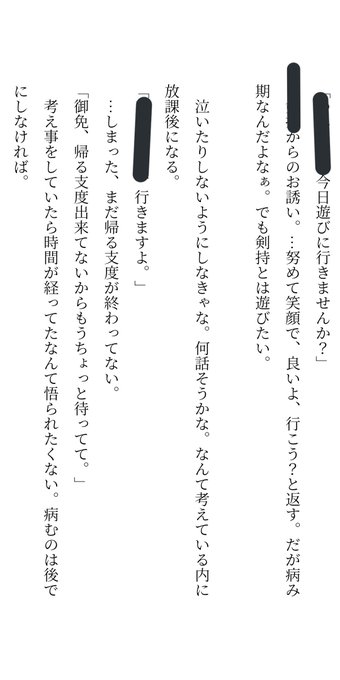 今日遊びに行きませんか?」
からのお誘い。…努めて笑顔で、良いよ、行こう?と返す。だが病み
期なんだよなぁ。でも剣持とは遊びたい。
泣いたりしないようにしなきゃな。何話そうかな。なんて考えている内に
放課後になる。
「 行きますよ。」
…しまった、まだ帰る支度が終わってない。
「御免、帰る支度出来てないからもうちょっと待ってて。」
考え事をしていたら時間が経ってたなんて悟られたくない。病むのは後で
にしなければ。